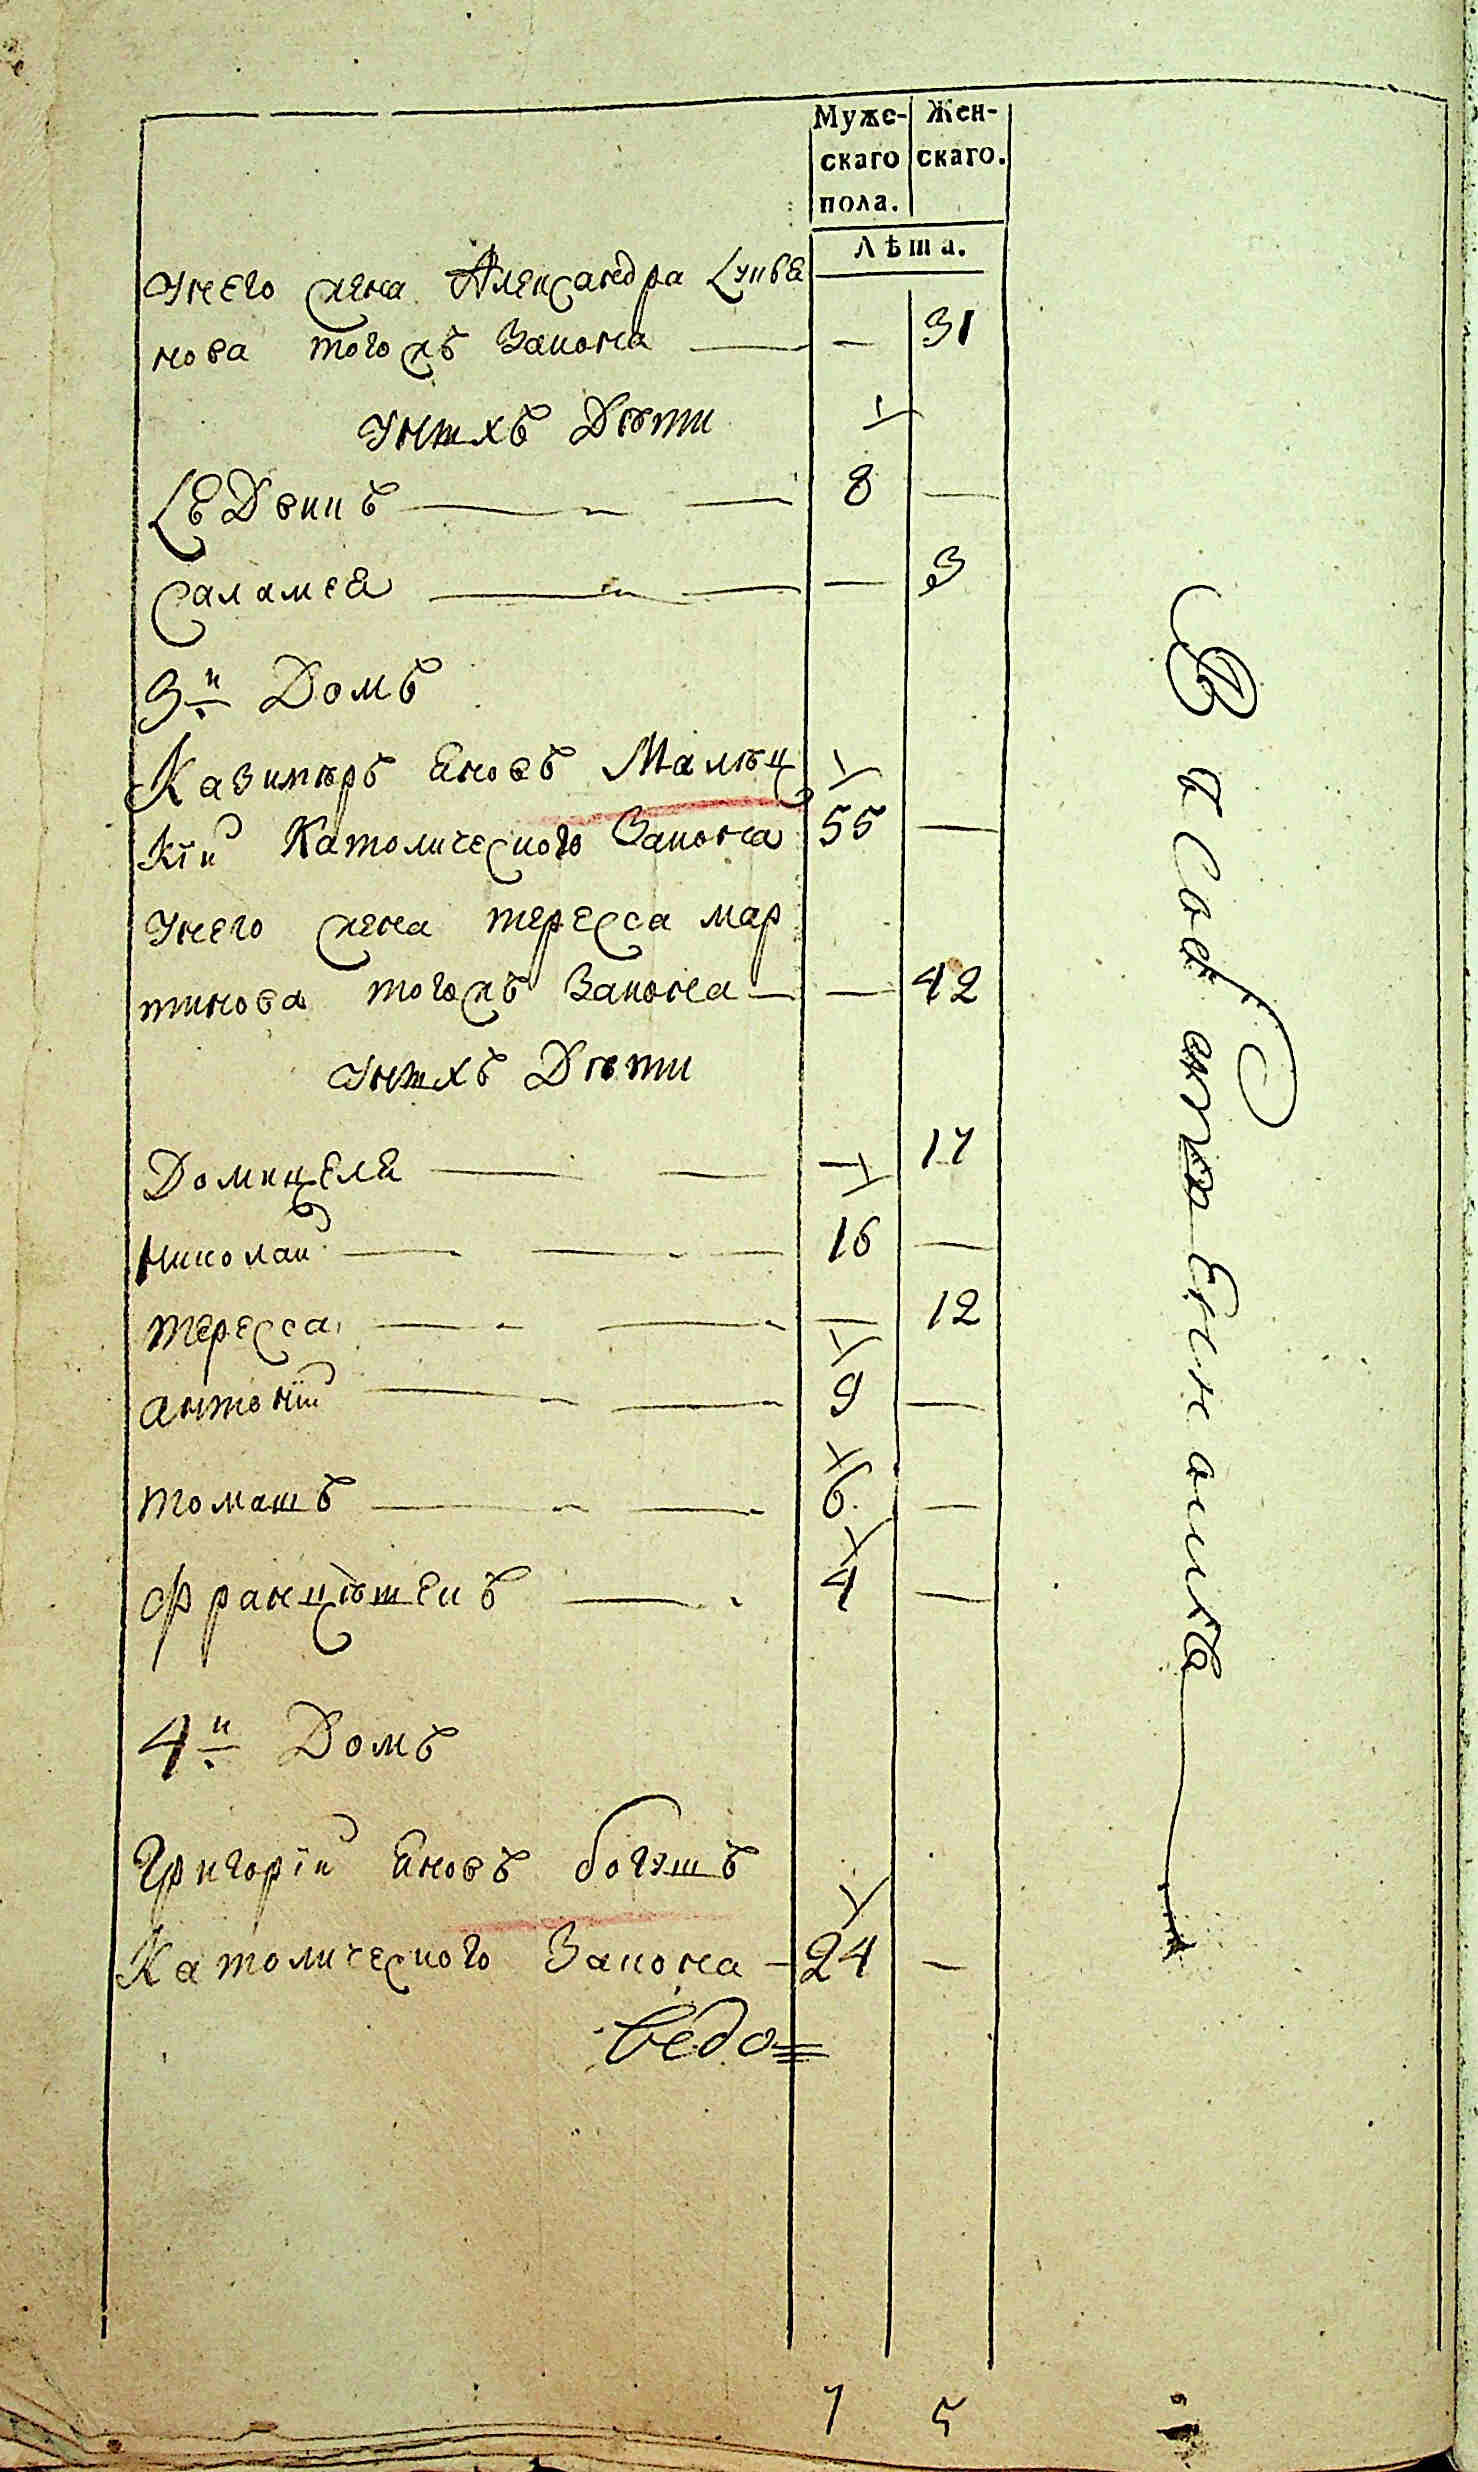 Муже-
скаго
пола.
Жен-
скаго.
Лѣта.
Унего жена Александра Лукья
нова тогожъ Закона — — 31
Унихъ Дѣти
Людвикъ — 8 —
Саламея — — 3
3й Домъ
Казимѣръ Яновъ Малѣц
Кій Католического Закона 55 —
Унего жена тересса мар
тинова тогожъ Закона — — 42
Унихъ Дѣти
Домицеля — — 17
николай — 16 —
тересса — — 12
антоній — 9 —
томашъ — 6 —
Францѣшекъ — 4 —
4й Домъ
Григорій Яновъ богушъ
Католического Закона — 24 —
Ведо=
7 5